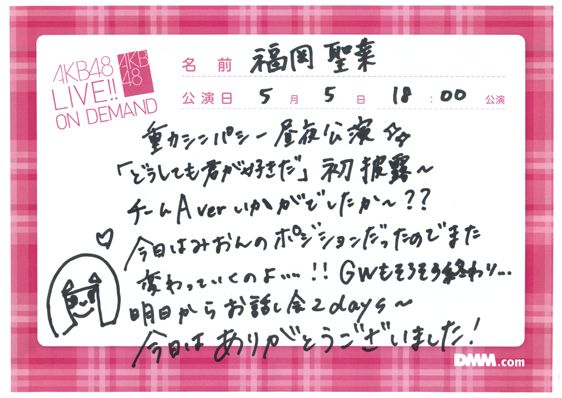 AKB48
LIVE!!
ON DEMAND
AKB
48
名前 福岡聖菜
公演日 5月5日 18:00公演
重力シンパシー昼夜公演☆☆
「どうしても君が好きだ」初披露~
チームA ver いかがでしたか~??
今日はみおんのポジションだったのでまた
変わっていくのよ…!! GWもそろそろ終わり...
明日からお話し会2days~
今日はありがとうございました!
DMM.com